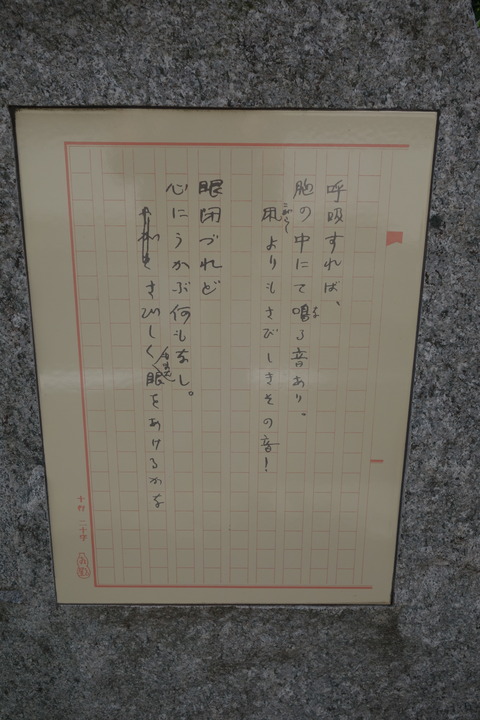 呼吸すれば、
胸の中にて鳴る音あり。
凩よりもさびしきその音!
眼閉づれど
心にうかぶ何もなし。
さびしくまた眼をあけるかな
十行 二十字